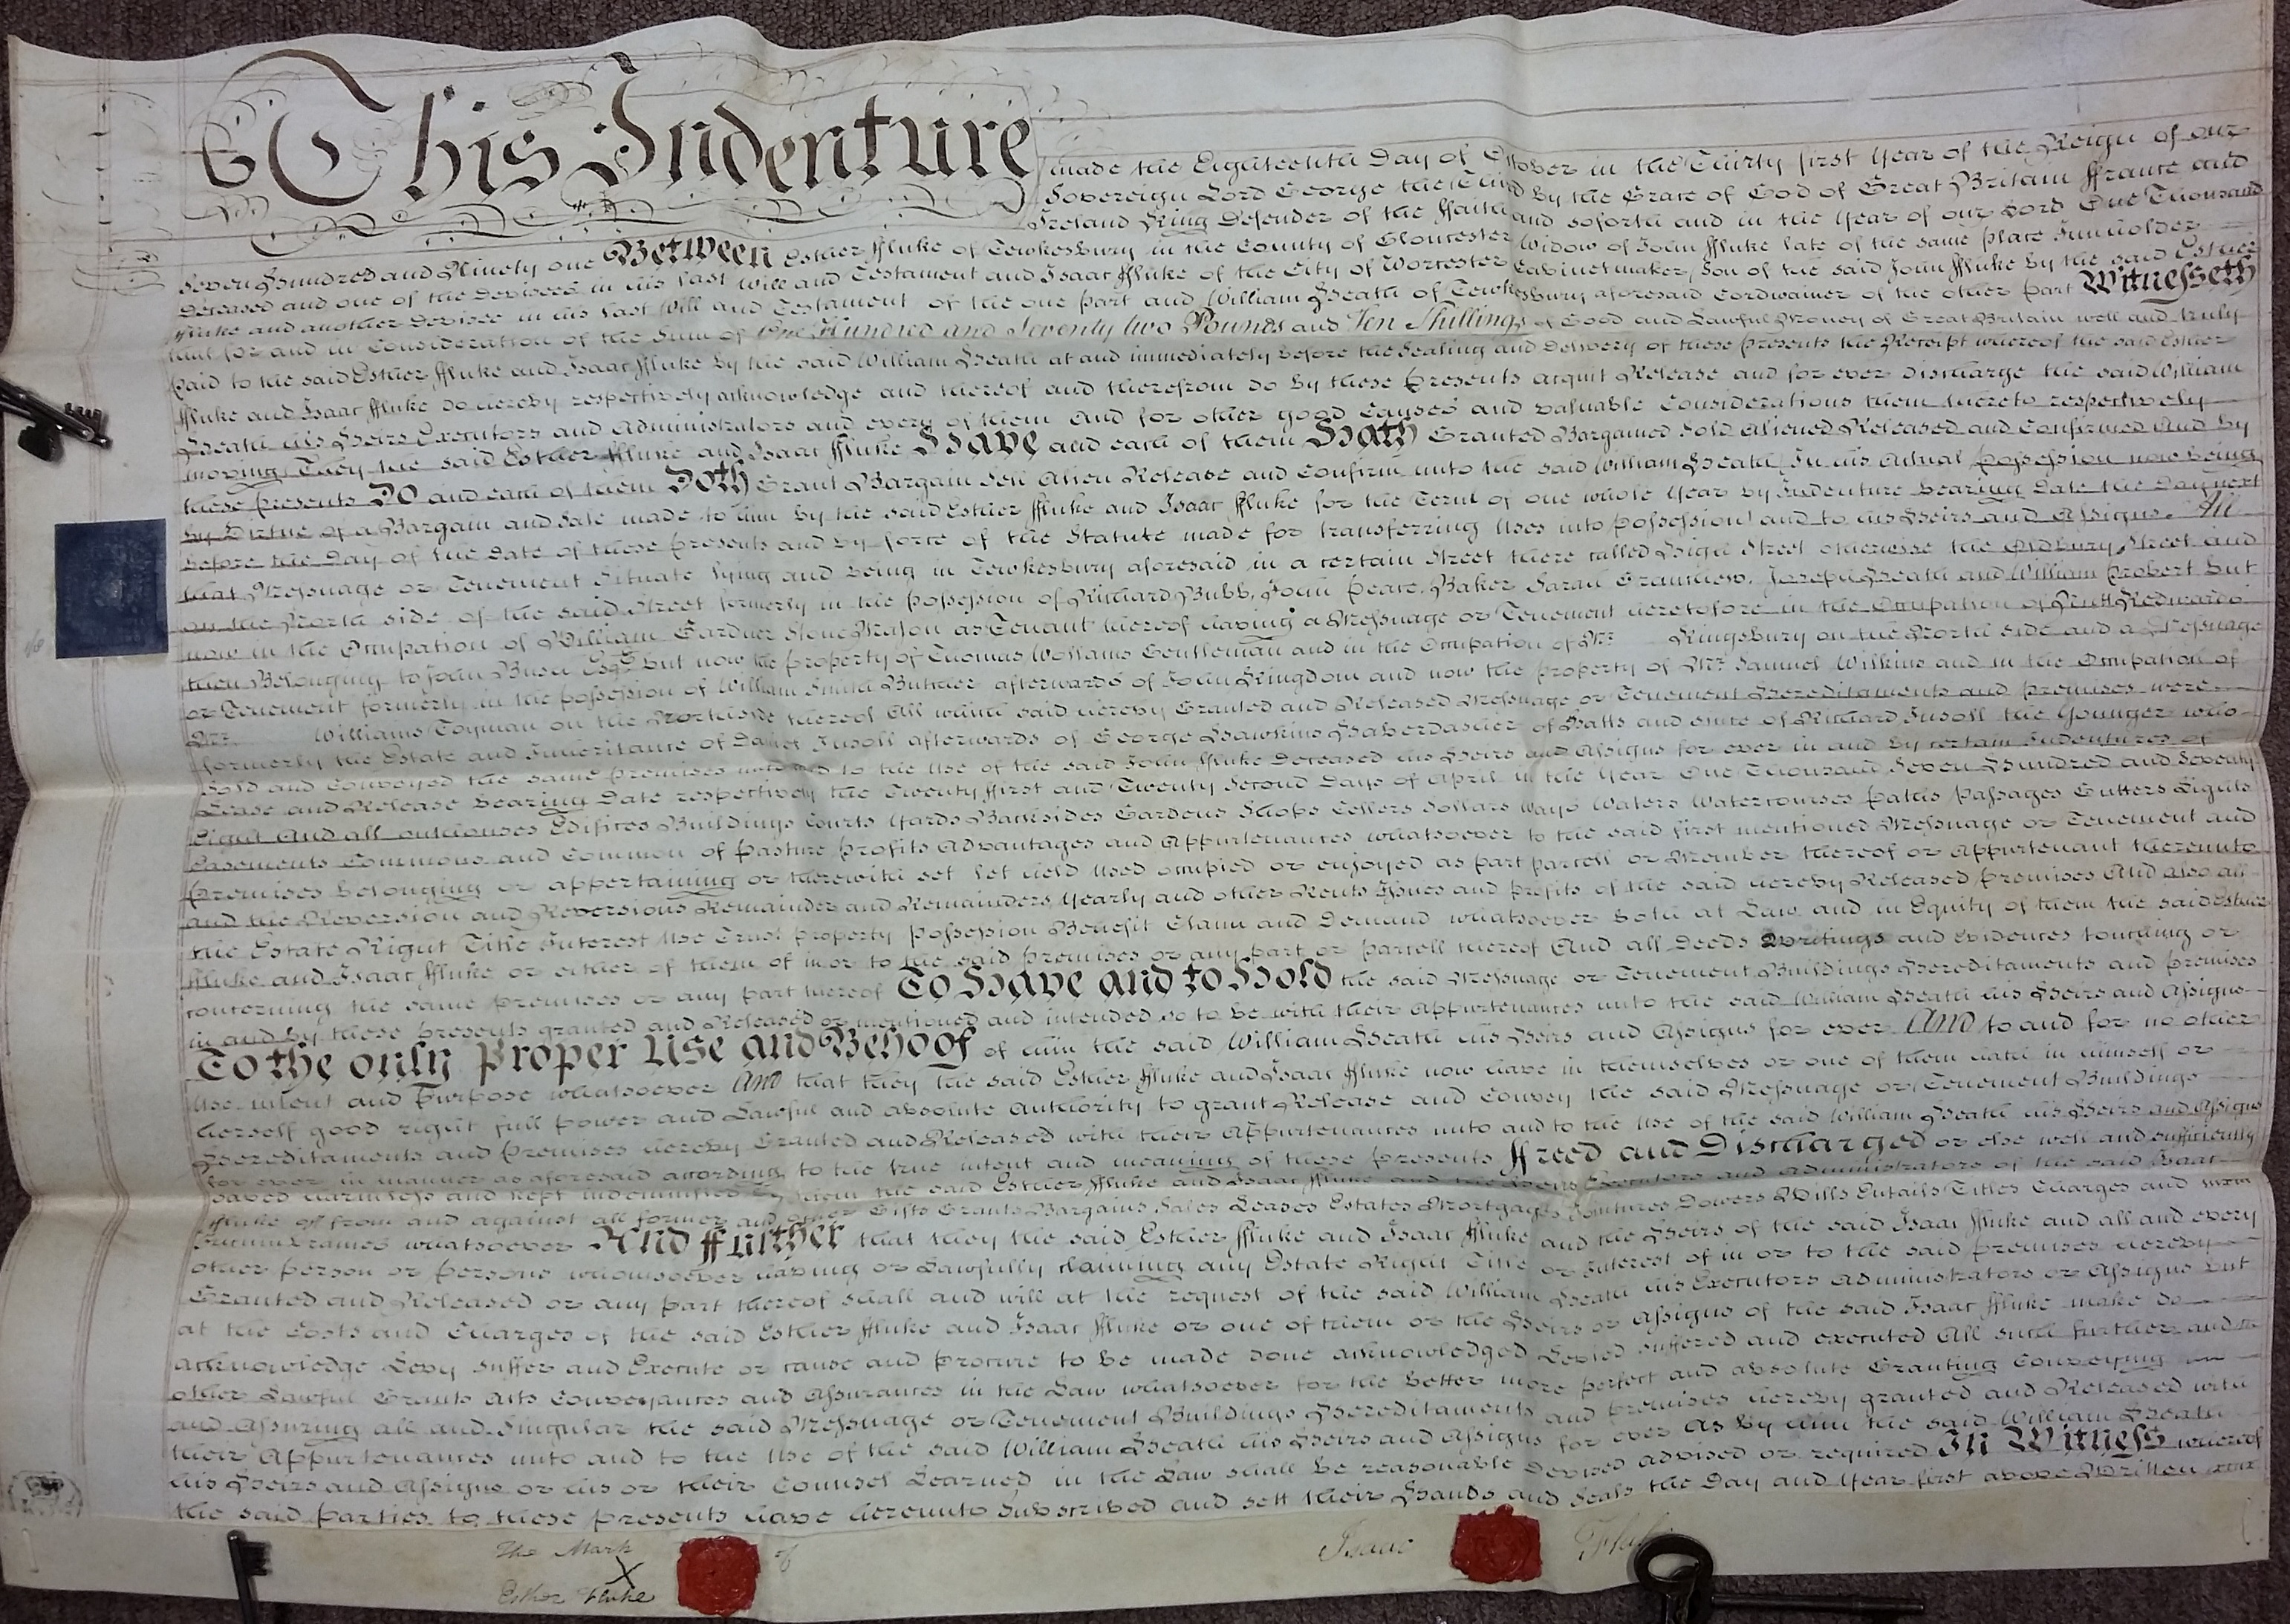 This Indenture made the Eighteenth Day of October in the Thirty first Year of the Reign of our
Sovereign Lord George the Third by the Grace of God of Great Britain ffrance and
Ireland King Defender of the ffaith and soforth and in the Year of our Lord One Thousand
Seven Hundred and Ninety one Between Esther ffluke of Tewkesbury in the County of Gloucester Widow of John ffluke late of the same place Innholder
Deceased and one of the Devisees in his last Will and Testament and Isaac ffluke of the City of Worcester Cabinetmaker, Son of the said John ffluke by the said Esther
ffluke and another Devisee in his last Will and Testament of the one part and William Heath of Tewkesbury aforesaid Cordwainer of the other part Witnesseth
that for and in Consideration of the Sum of One Hundred and Seventy two Pounds and Ten Shillings of Good and Lawful Money of Great Britain well and truly
paid to the said Esther ffluke and Isaac ffluke by the said William Heath at and immediately before the Sealing and Delivery of these presents the Receipt whereof the said Esther
ffluke and Isaac ffluke do hereby respectively acknowledge and thereof and therefrom do by these presents acquit Release and for ever discharge the said William
Heath his Heirs Executors and Administrators and every of them and for other good Causes and valuable Considerations them hereto respectively
moving They the said Esther ffluke and Isaac ffluke Have and each of them Hath Granted Bargained Sold Aliened Released and Confirmed And by
these presents Do and each of them Doth Grant Bargain Sell Alien Release and Confirm unto the said William Heath In his Actual possession now being
by Virtue of a Bargain and Sale made to him by the said Esther ffluke and Isaac ffluke for the Term of one whole Year by Indenture bearing Date the Day next
before the Day of the Date of these presents and by force of the Statute made for transferring Uses into possession and to his Heirs and Assigns. All
that Messuage or Tenement Situate lying and being in Tewkesbury aforesaid in a certain Street there called High Street otherwise the Oldbury Street and
on the North side of the said Street formerly in the possession of Richard Bubb, John Peare, Baker Sarah Joseph Heath and William Probert but
now in the Occupation of William Gardner Stone Mason as Tenant thereof having a Messuage or Tenement heretofore in the Occupation of
then Belonging to John Bush Esqr. but now the property of Thomas Wollams Gentleman and in the Occupation of Mr. Kingsbury on the North side and a Messuage
or Tenement formerly in the possession of William Smith Butcher afterwards of John Kingdom and now the property of Mr. Samuel Wilkins and in the Occupation of
Mr. Williams Toyman on the Northside thereof All which said hereby Granted and Released Messuage or Tenement Hereditaments and premises were
formerly the Estate and Inheritance of Daniel Insoll afterwards of George Hawkins Haberdasher of Hatts and since of Richard Insoll the Younger who
Sold and Conveyed the same premises unto and to the Use of the said John ffluke Deceased his Heirs and Assigns for ever in and by certain Indentures of
Lease and Release bearing Date respectively the Twenty ffirst and Twenty Second Days of April in the Year One Thousand Seven Hundred and Seventy
Eight And all outhouses Edifices Buildings Courts Yards Backsides Gardens Shops Cellers Sollars Ways Waters Watercourses paths passages Gutters Lights
Easements Commons and Common of pasture profits Advantages and Appurtenances whatsoever to the said first mentioned Messuage or Tenement and
premises belonging or appertaining or therewith set let held Used occupied or enjoyed as part parcell or Member thereof or Appurtenant thereunto
and the Reversion and Reversions Remainder and Remainders Yearly and other Rents Issues and profits of the said hereby Released premises And also all
the Estate Right Title Interest Use Trust property possession Benefit Claim and Demand whatsoever both at Law and in Equity of them the said Esther
ffluke and Isaac ffluke or either of them of in or to the said premises or any part or parcell thereof And all Deeds Writings and Evidences touching or
concerning the same premises or any part thereof To Have and to Hold the said Messuage or Tenement Buildings Hereditaments and premises
in and by these presents granted and Released or mentioned and intended so to be with their Appurtenances unto the said William Heath his Heirs and Assigns
To the only proper Use and Behoof of him the said William Heath his Heirs and Assigns for ever And to and for no other
Use intent and Purpose whatsoever And that they the said Esther ffluke and Isaac ffluke now have in themselves or one of them hath in himself or
herself good right full power and Lawful and absolute Authority to grant Release and Convey the said Messuage or Tenement Buildings
Hereditaments and premises hereby Granted and Released with their Appurtenances unto and to the Use of the said William Heath his Heirs and Assigns
for ever in manner as aforesaid according to the true intent and meaning of these presents ffreed and Discharged or else well and sufficiently
saved harmless and kept indemnified by them the said Esther ffluke and Isaac ffluke and the Heirs Executors and Administrators of the said Isaac
ffluke of from and against all former and other Gifts Grants Bargains Sales Leases Estates Mortgages Jointures Dowers Wills Entails Titles Charges and
Incumbrances whatsoever And ffurther that they the said Esther ffluke and Isaac ffluke and the Heirs of the said Isaac ffluke and all and every
other person or persons whomsoever having or Lawfully claiming any Estate Right Title or Interest of in or to the said premises hereby
Granted and Released or any part thereof shall and will at the request of the said William Heath his Executors Administrators or Assigns but
at the Costs and Charges of the said Esther ffluke and Isaac ffluke or one of them or the Heirs or Assigns of the said Isaac ffluke make do
acknowledge Levy suffer and Execute or cause and procure to be made done acknowledged Levied suffered and executed All such further and
other Lawful Grants Acts Conveyances and Assurances in the Law whatsoever for the better more perfect and absolute Granting Conveying
and Assuring all and Singular the said Messuage or Tenement Buildings Hereditaments and premises hereby granted and Released with
their Appurtenances unto and to the Use of the said William Heath his Heirs and Assigns for ever As by him the said William Heath
his Heirs and Assigns or his or their Counsel Learned in the Law shall be reasonable Devised advised or required In Witness whereof
the said parties to these presents have hereunto Subscribed and sett their Hands and Seals the Day and Year first above Written
The Mark of
X
Esther Fluke
Isaac Fluke